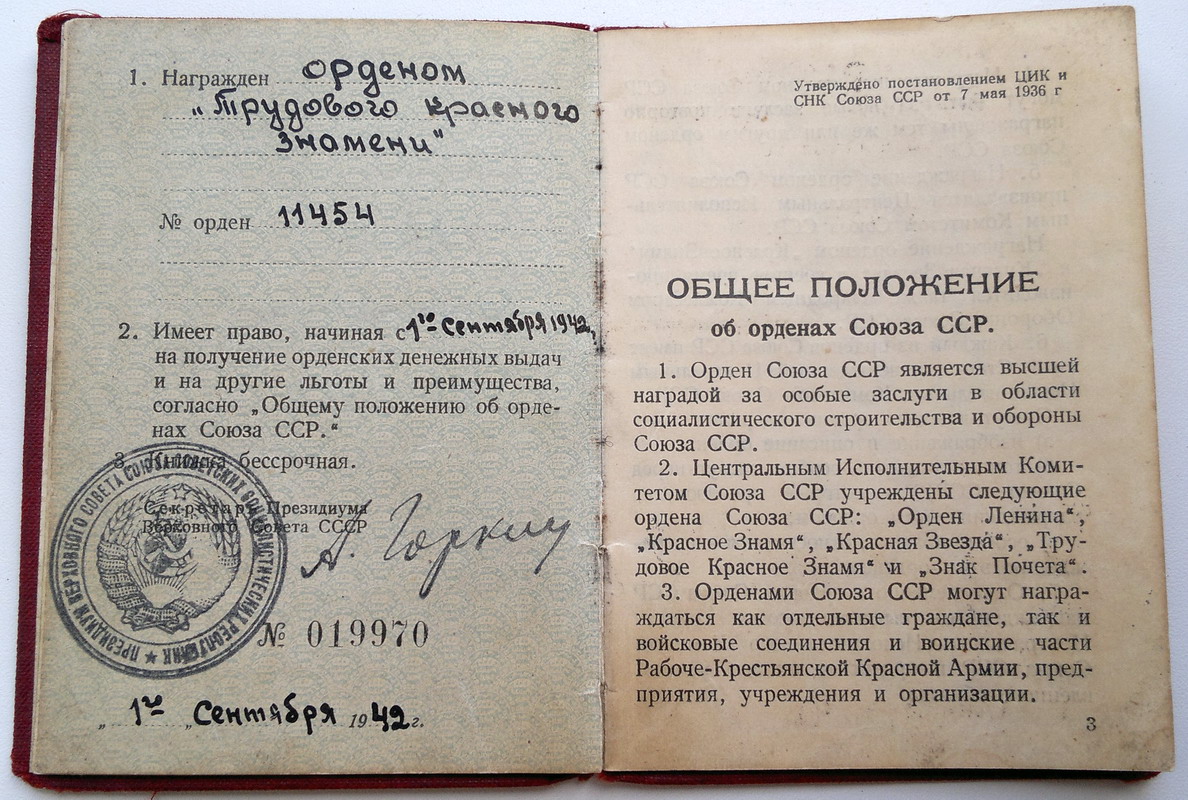 1. Награжден орденом
„Трудового красного
знамени"
№ орден 11454
2. Имеет право, начиная с 1го Сентября 1942,
на получение орденских денежных выдач
и на другие льготы и преимущества,
согласно „Общему положению об орде-
нах Союза ССР.“
3. Книжка бессрочная.
Секретарь Президиума
Верховного Совета СССР
А. Горкин
ПРЕЗИДИУМ ВЕРХОВНОГО СОВЕТА СОЮЗА СОВЕТСКИХ СОЦИАЛИСТИЧЕСКИХ РЕСПУБЛИК
№ 019970
„ 1го „ Сентября 1942 г.
Утверждено постановлением ЦИК и
СНК Союза ССР от 7 мая 1936 г
ОБЩЕЕ ПОЛОЖЕНИЕ
об орденах Союза ССР.
1. Орден Союза ССР является высшей
наградой за особые заслуги в области
социалистического строительства и обороны
Союза ССР.
2. Центральным Исполнительным Коми-
тетом Союза ССР учреждены следующие
ордена Союза ССР: „Орден Ленина“,
„Красное Знамя“, „Красная Звезда“, „Тру-
довое Красное Знамя“ и „Знак Почета“.
3. Орденами Союза ССР могут награ-
ждаться как отдельные граждане, так и
войсковые соединения и воинские части
Рабоче-Крестьянской Красной Армии, пред-
приятия, учреждения и организации.
3